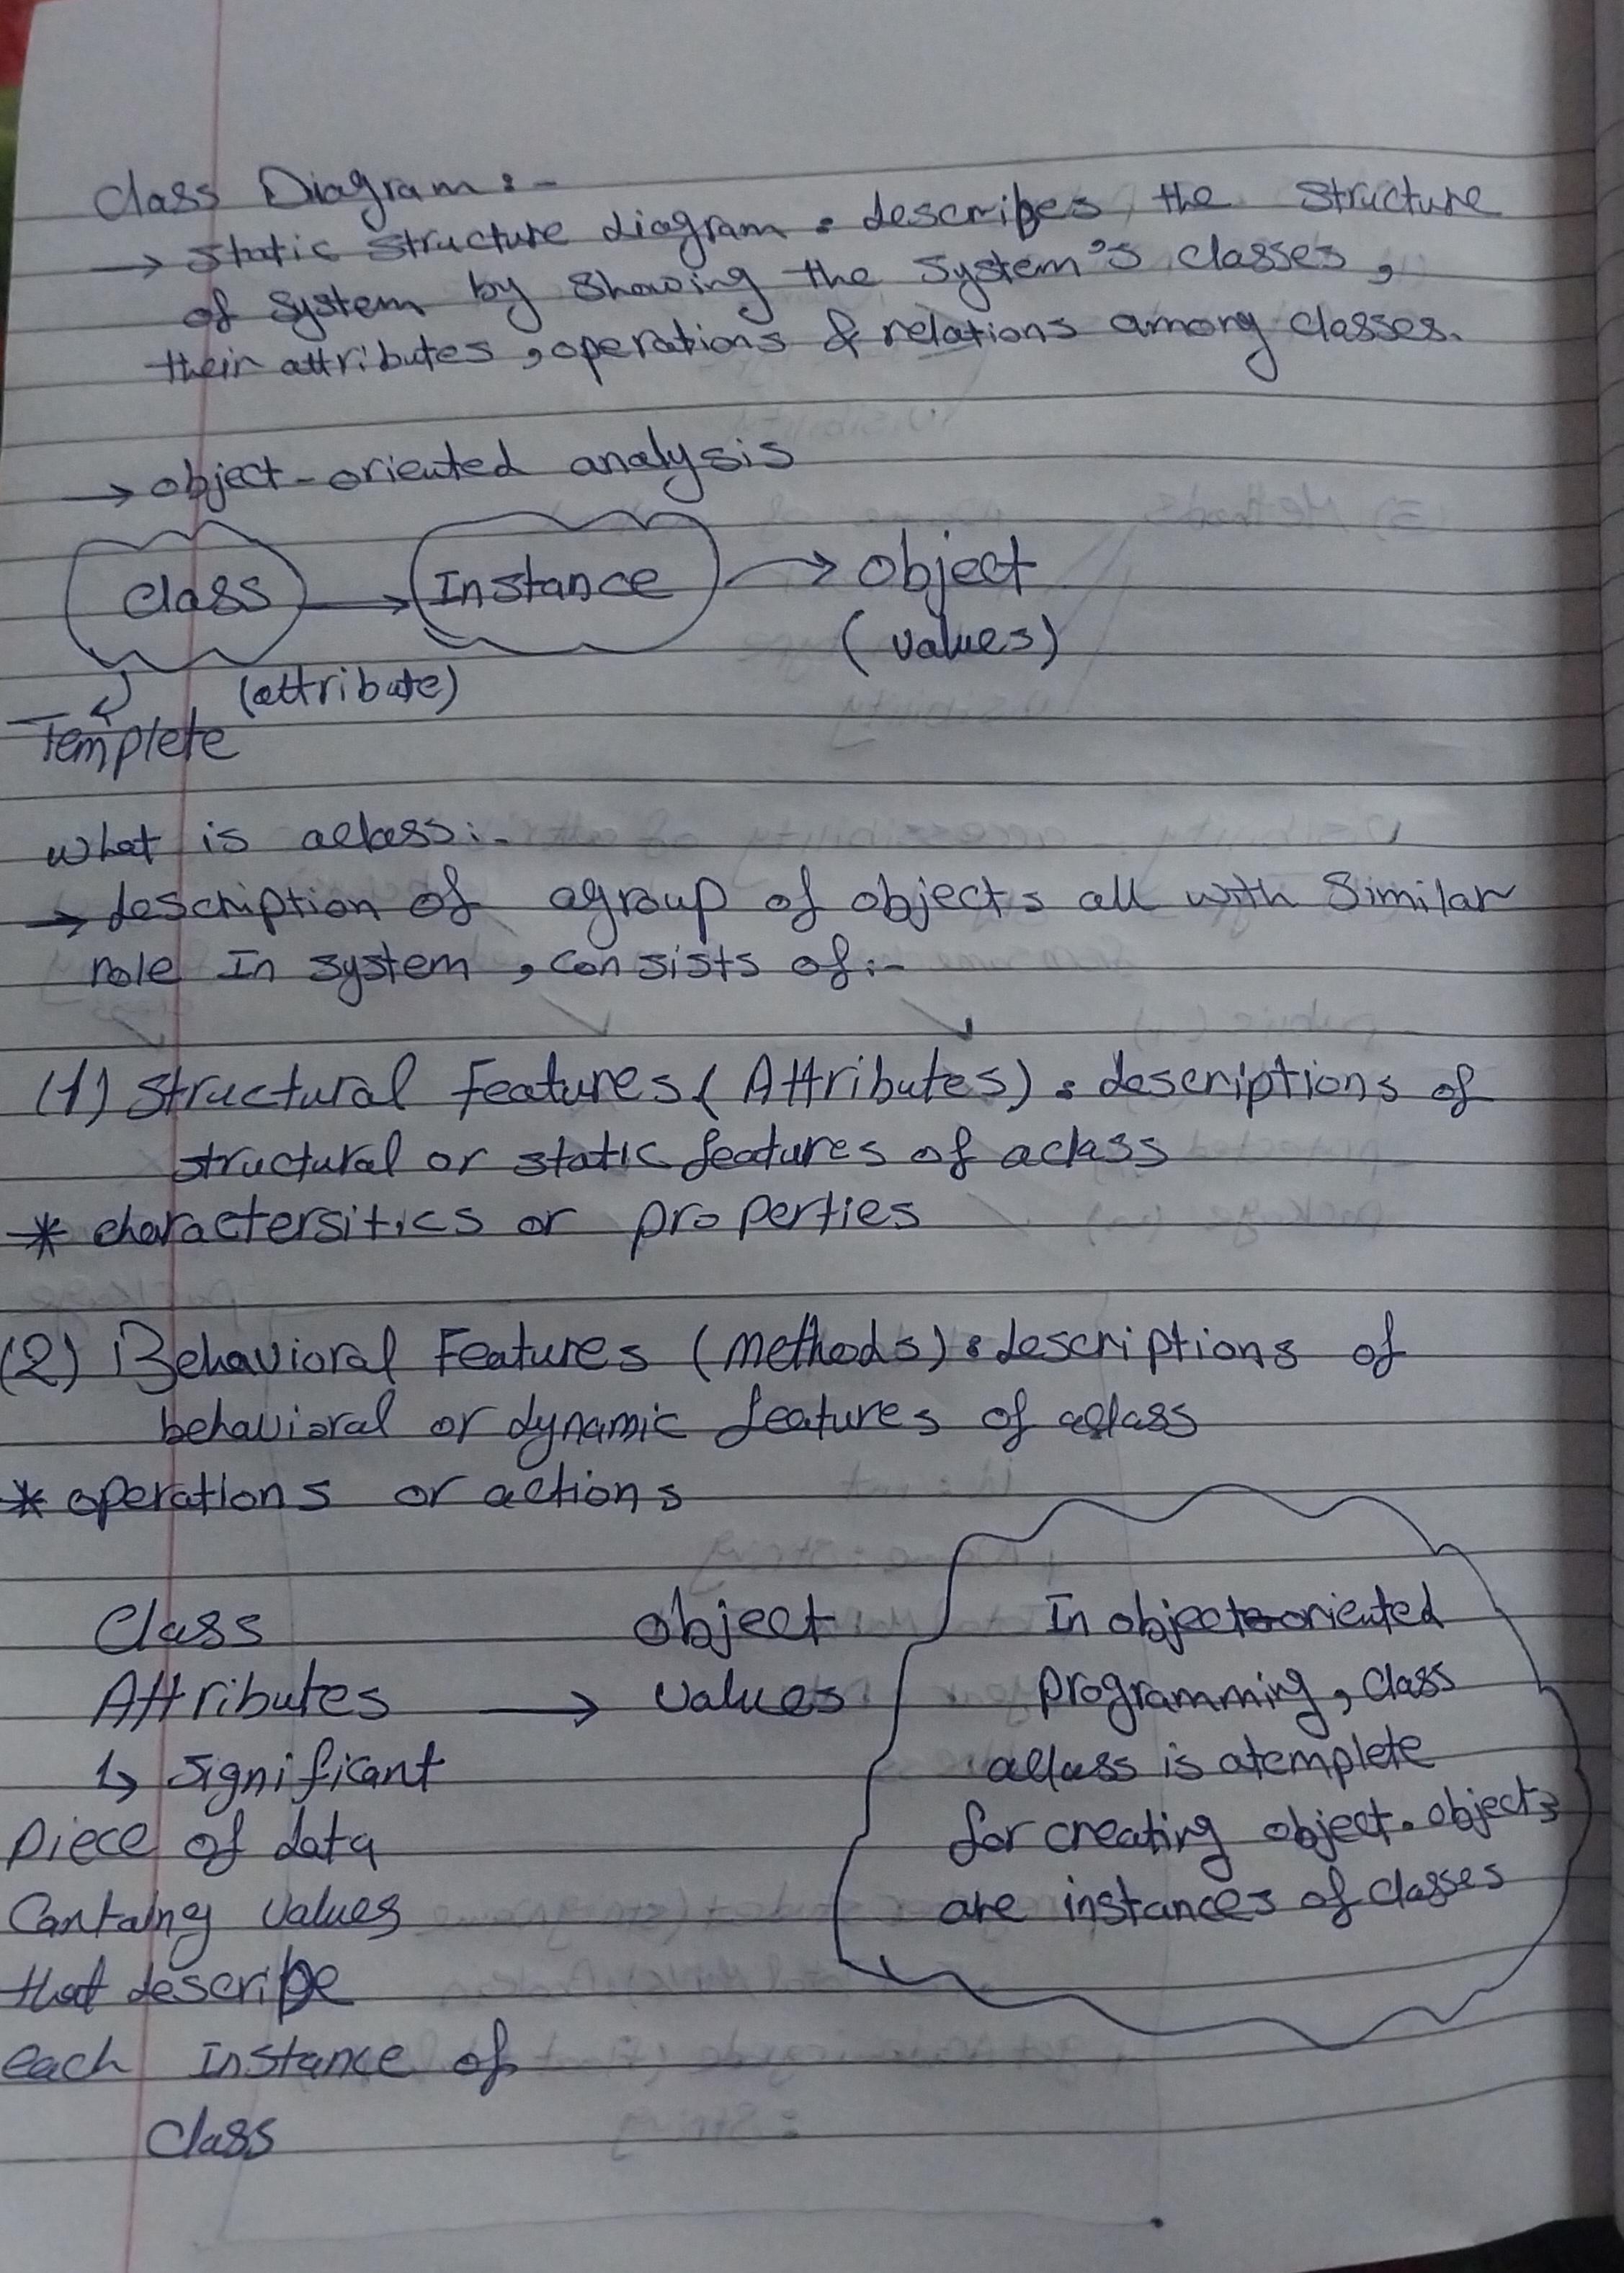 Class Diagram :-
→ Static structure diagram : describes the structure
of system by showing the system's classes,
their attributes, operations & relations among classes.
→ object-oriented analysis
Class → Instance → object
(values)
(attribute)
Templete
what is aclass:-
→ description of agroup of objects all with similar
role In system, consists of:-
(1) Structural Features (Attributes) : descriptions of
structural or static features of aclass
* charactersitics or properties
(2) Behavioral Features (methods) : descriptions of
behavioral or dynamic features of aclass
* operations or actions
Class object
Attributes → values
↳ significant
piece of data
Containg values
that describe
each Instance of
Class
In object-oriented
programming, class
aclass is atemplete
for creating object. objects
are instances of classes